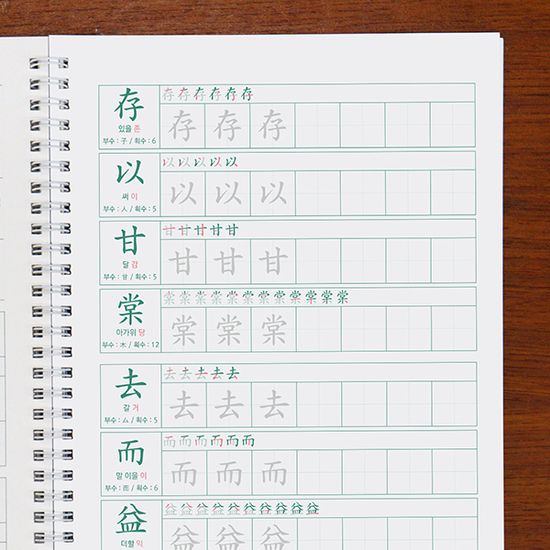 存 存 存 存 存 存 存
存 存 存 存
있을 존
부수 : 子 / 획수 : 6
以 以 以 以 以
以 以 以 以
써 이
부수 : 人 / 획수 : 5
甘 甘 甘 甘 甘
甘 甘 甘 甘
달 감
부수 : 甘 / 획수 : 5
棠 棠 棠 棠 棠 棠 棠 棠 棠 棠 棠 棠
棠 棠 棠 棠
아가위 당
부수 : 木 / 획수 : 12
去 去 去 去 去
去 去 去 去
갈 거
부수 : 厶 / 획수 : 5
而 而 而 而 而 而
而 而 而 而
말 이을 이
부수 : 而 / 획수 : 6
益 益 益 益 益 益 益 益 益 益
益 益 益 益
더할 익